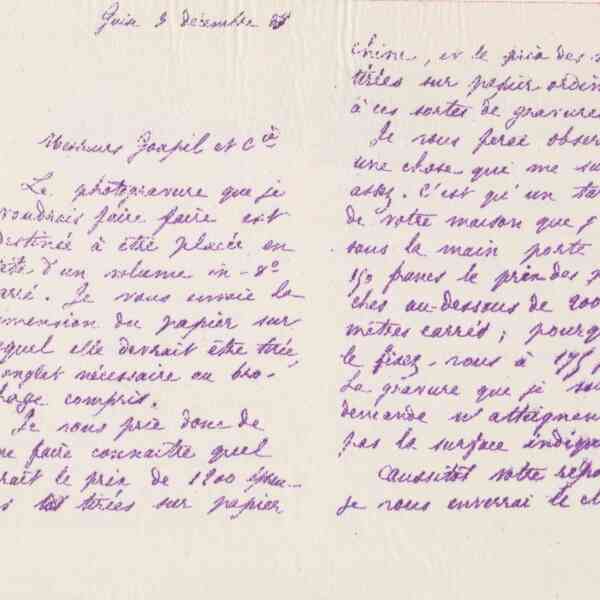 Guin 3 décembre 85
Messieurs Goupil et Cie
La photogravure que je
voudrais faire faire est
destinée à être placée en
tête d'un volume in-8°
carré. Je vous envoie la
dimension du papier sur
lequel elle devrait être tirée,
onglet nécessaire au bro-
chage compris.
Je vous prie donc de
me faire connaître quel
serait le prix de 1200 épreu-
tirées sur papier
chine, et le prix des
tirées sur papier ordin
à ces sortes de gravures
Je vous ferai obser
une chose que me
assez. C'est qu'un tar
de votre maison que j
sous la main porte
150 francs le prix des
ches au-dessous de 200
mètres carrés ; pourq
le fixez-vous à 175
La gravure que je
demande n'atteignent
pas la surface indiqu
Aussitôt votre répo
je vous enverrai le cl